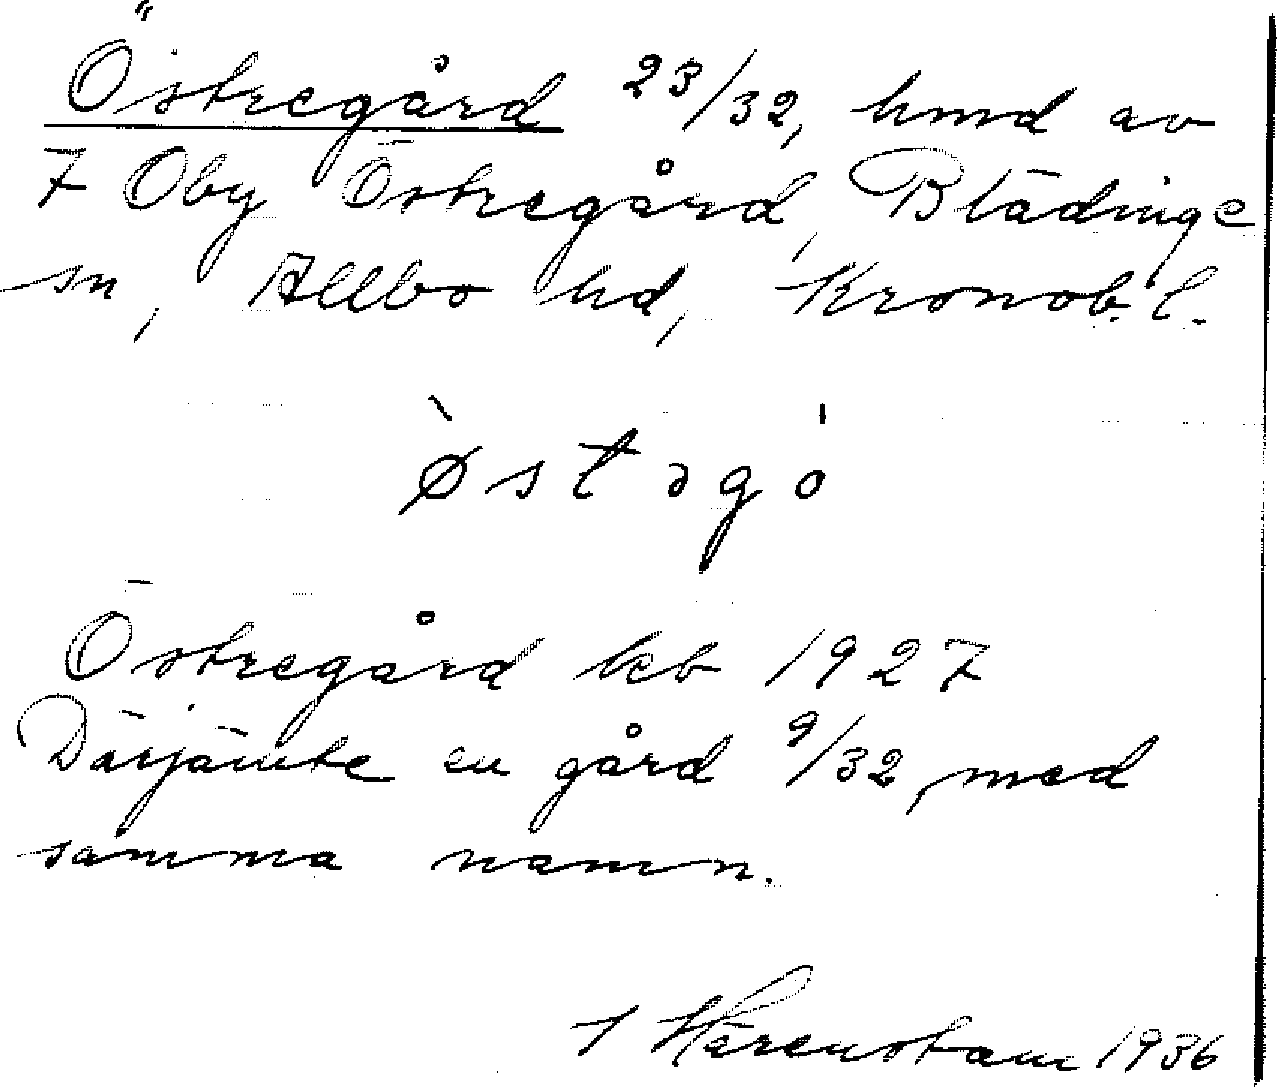 Östregård 23/32, hmd av
7 Oby Östregård, Blädinge
sn, Allbo hd, Kronob. l.
̀østəgó
Östregård kb 1927
Därjämte en gård 9/32, med
samma namn.
Härenstam 1936